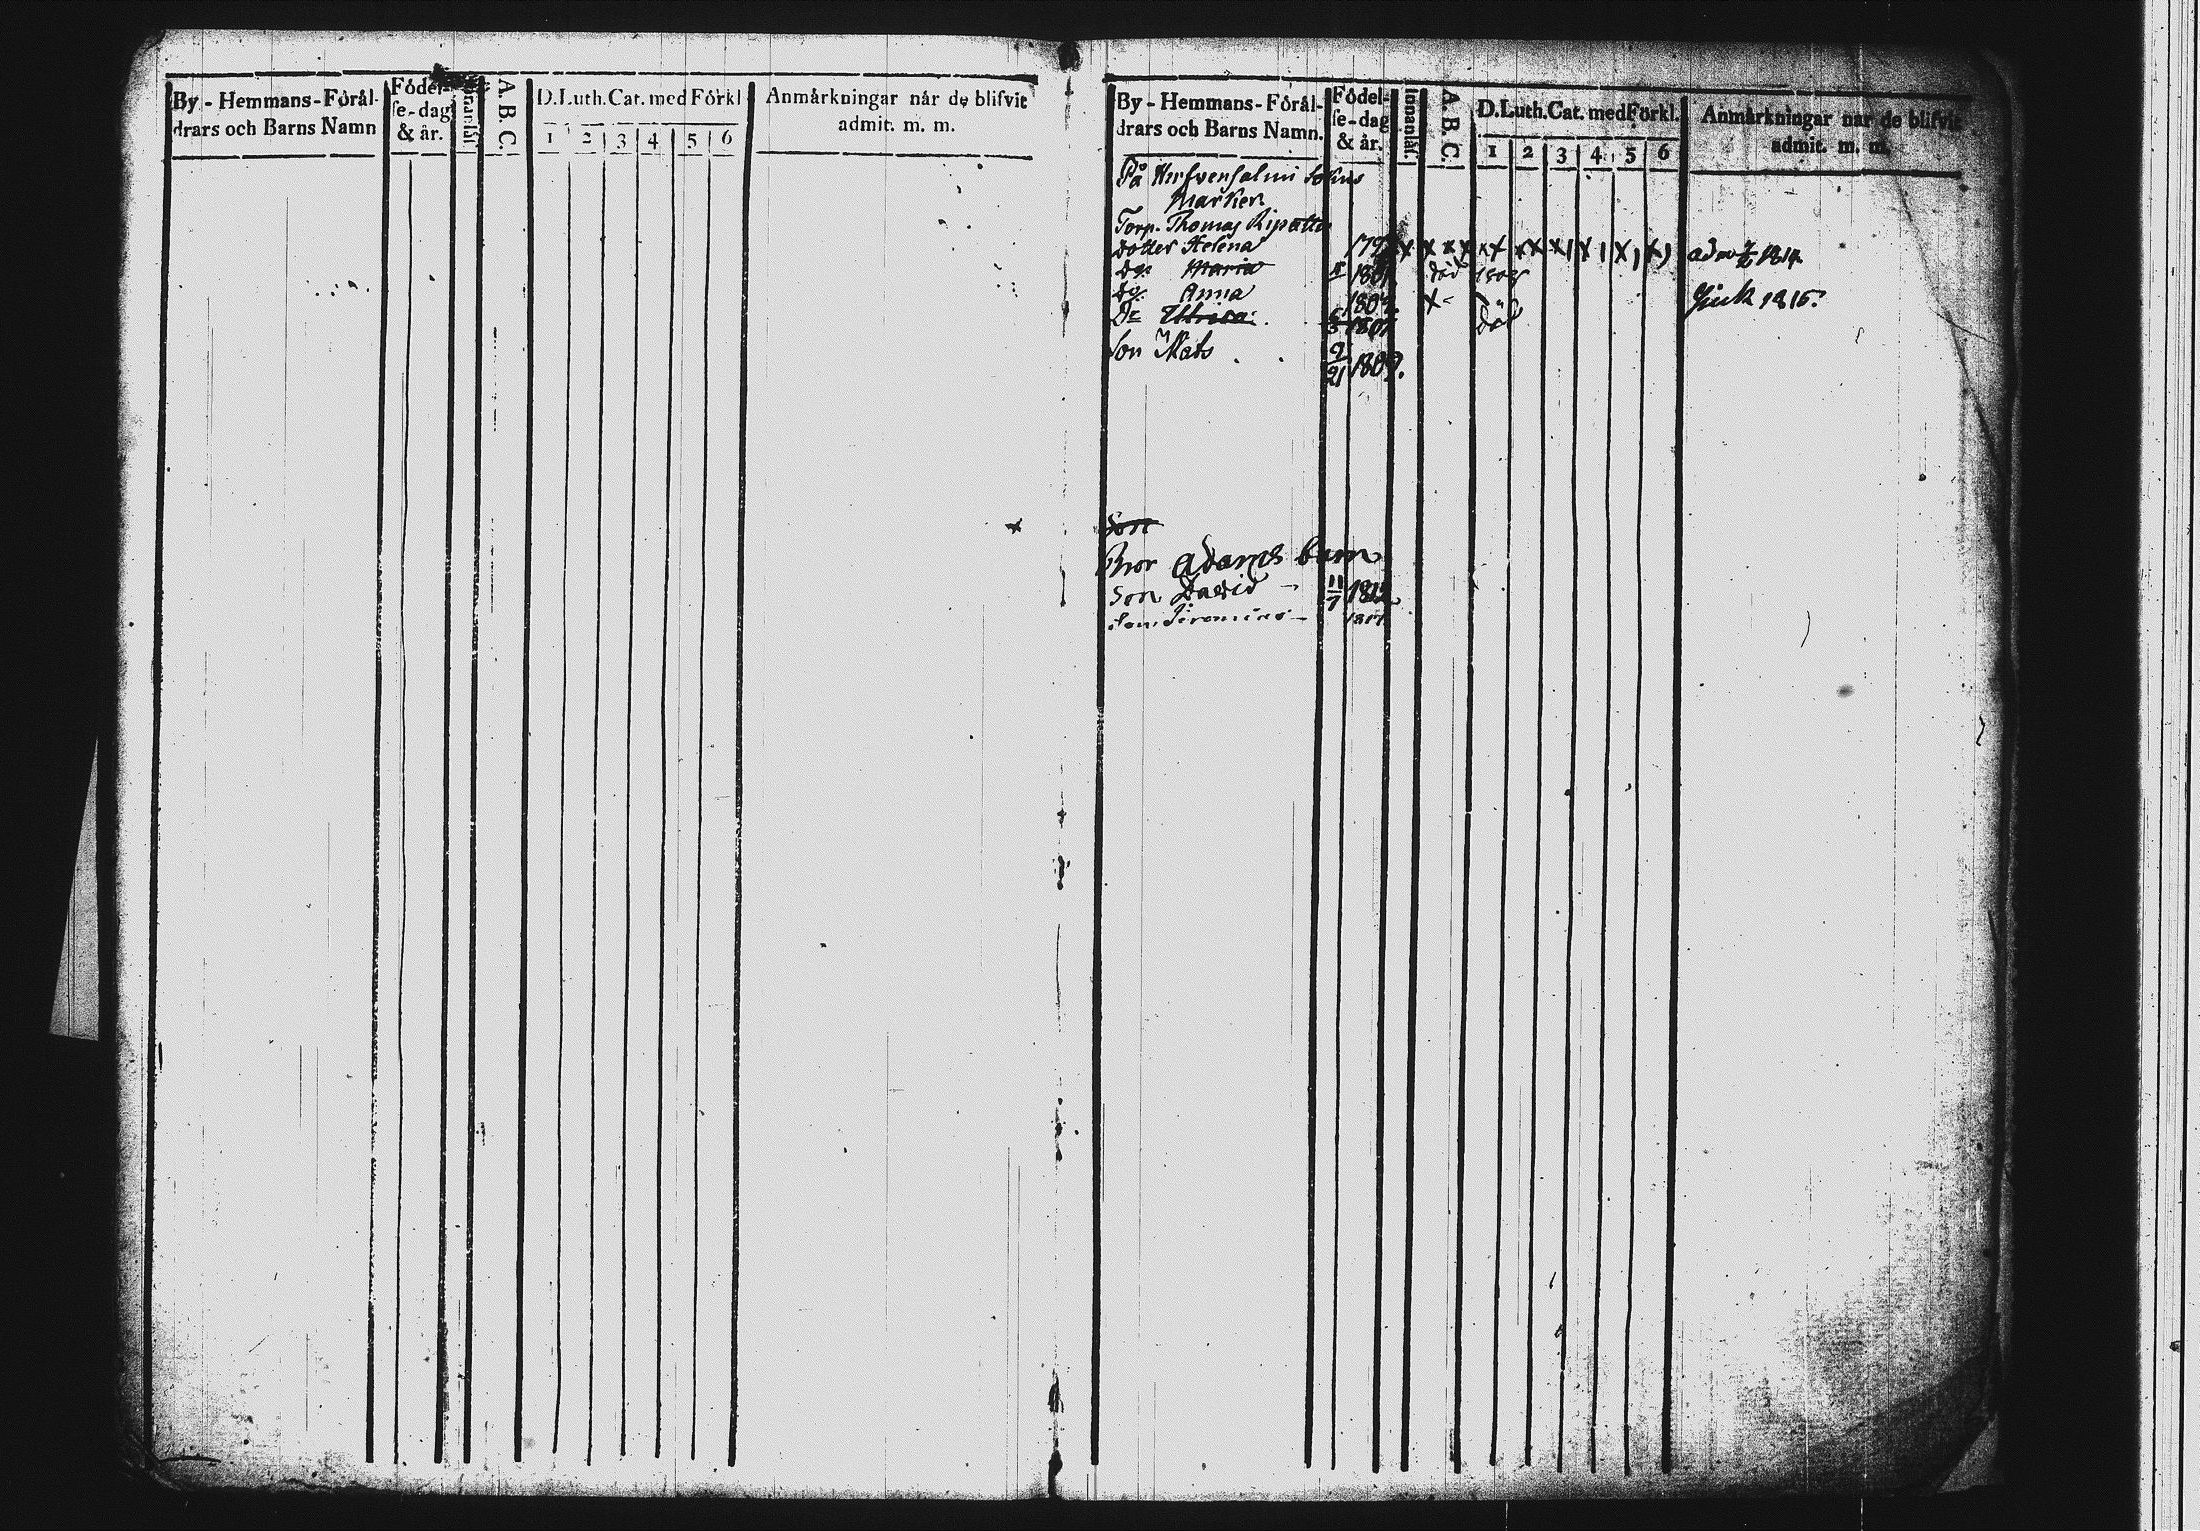 By - Hemmans - Förål-
drars och Barns Namn
Födel-
se-dag
& år.
A. B. C.
D. Luth. Cat. med Förkl
1 2 3 4 5 6
Anmårkningar når de blifvit
admit. m. m.
By - Hemmans - Förål-
drars och Barns Namn.
Födel-
se-dag
& år.
Innanläs.
A. B. C.
D. Luth. Cat. med Förkl.
1 2 3 4 5 6
Anmårkningar når de blifvit
admit. m. m.
På Hirfvensalmi Sokns
Marken
Torp. Thomas Ripatti
Dotter Helena x x x x x x x x x x x 1814
Do Maria 1801 död
Do Anna x Gick 1816.
Dr 1807 död
Son Mats 9/21 1809.
Son
Bror Adams barn
Son David 11/7 1812
Son 1817